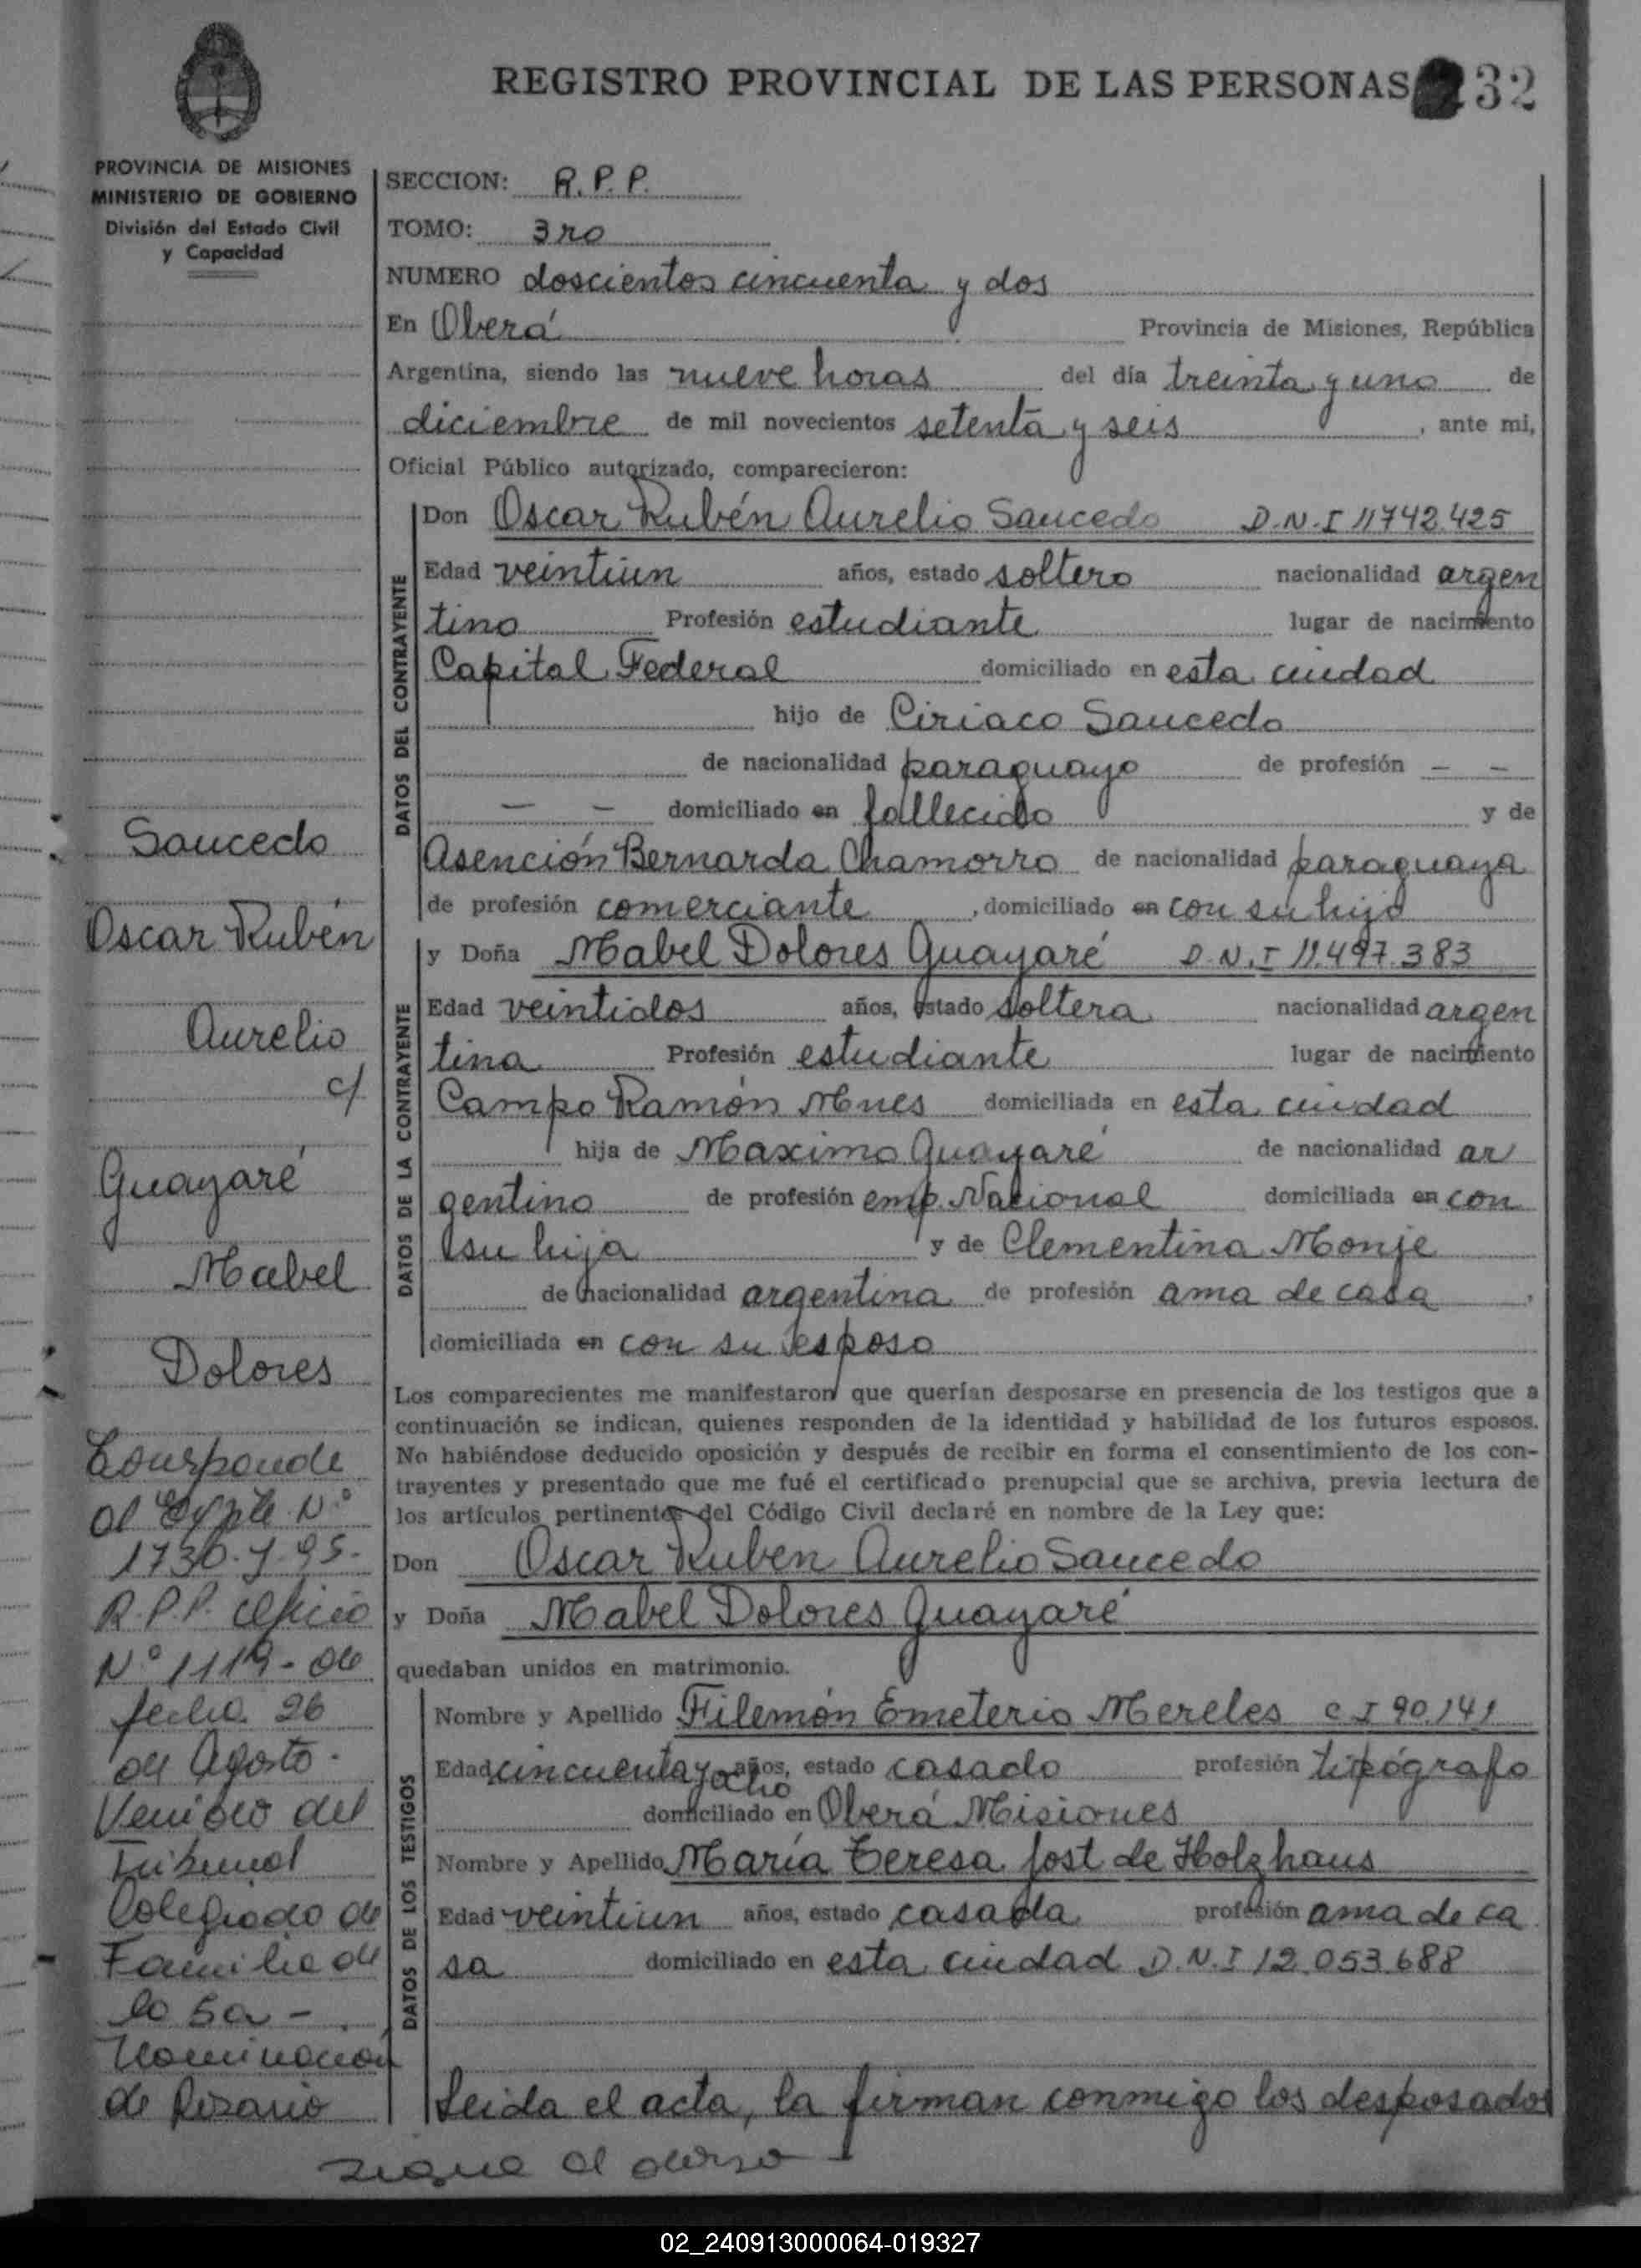 REGISTRO PROVINCIAL DE LAS PERSONAS 32
PROVINCIA DE MISIONES
MINISTERIO DE GOBIERNO
División del Estado Civil
y Capacidad
SECCION: R.P.P.
TOMO: 3ro
NUMERO doscientos cincuenta y dos
En Oberá Provincia de Misiones, República
Argentina, siendo las nueve horas del día treinta y uno de
diciembre de mil novecientos setenta y seis, ante mi,
Oficial Público autorizado, comparecieron:
DATOS DEL CONTRAYENTE
Don Oscar Rubén Aurelio Saucedo D.N.I 11742.425
Edad veintiun años, estado soltero nacionalidad argen
tino Profesión estudiante lugar de nacimiento
Capital Federal domiciliado en esta ciudad
hijo de Ciriaco Saucedo
de nacionalidad paraguayo de profesión - -
- - domiciliado en fallecido y de
Asención Bernarda Chamorro de nacionalidad paraguaya
de profesión comerciante, domiciliado en con su hijo
DATOS DE LA CONTRAYENTE
y Doña Mabel Dolores Guayaré D.N.I 11.497.383
Edad veintidos años, estado soltera nacionalidad argen
tina Profesión estudiante lugar de nacimiento
Campo Ramón Mnes domiciliada en esta ciudad
hija de Maximo Guayaré de nacionalidad ar
gentino de profesión emp. Nacional domiciliada en con
su hija y de Clementina Monje
de nacionalidad argentina de profesión ama de casa,
domiciliada en con su esposo
Los comparecientes me manifestaron que querían desposarse en presencia de los testigos que a
continuación se indican, quienes responden de la identidad y habilidad de los futuros esposos.
No habiéndose deducido oposición y después de recibir en forma el consentimiento de los con-
trayentes y presentado que me fué el certificado prenupcial que se archiva, previa lectura de
los artículos pertinentes del Código Civil declaré en nombre de la Ley que:
Don Oscar Ruben Aurelio Saucedo
y Doña Mabel Dolores Guayaré
quedaban unidos en matrimonio.
DATOS DE LOS TESTIGOS
Nombre y Apellido Filemón Emeterio Mereles C I 90.141
Edad cincuenta y ocho años, estado casado profesión tipógrafo
domiciliado en Oberá Misiones
Nombre y Apellido María Teresa Jost de Holzhaus
Edad veintiun años, estado casada profesión ama de ca
sa domiciliado en esta ciudad D.N.I 12.053.688
Leida el acta, la firman conmigo los desposados
Saucedo
Oscar Rubén
Aurelio
c/
Guayaré
Mabel
Dolores
Corresponde
al Expte N°
1730-J-95-
R.P.P. Oficio
N° 1119- de
fecha 26
de Agosto -
Venido del
Tribunal
Colegiado de
Familia de
la 5a -
Nominación
de Rosario
sigue al dorso
02_240913000064-019327